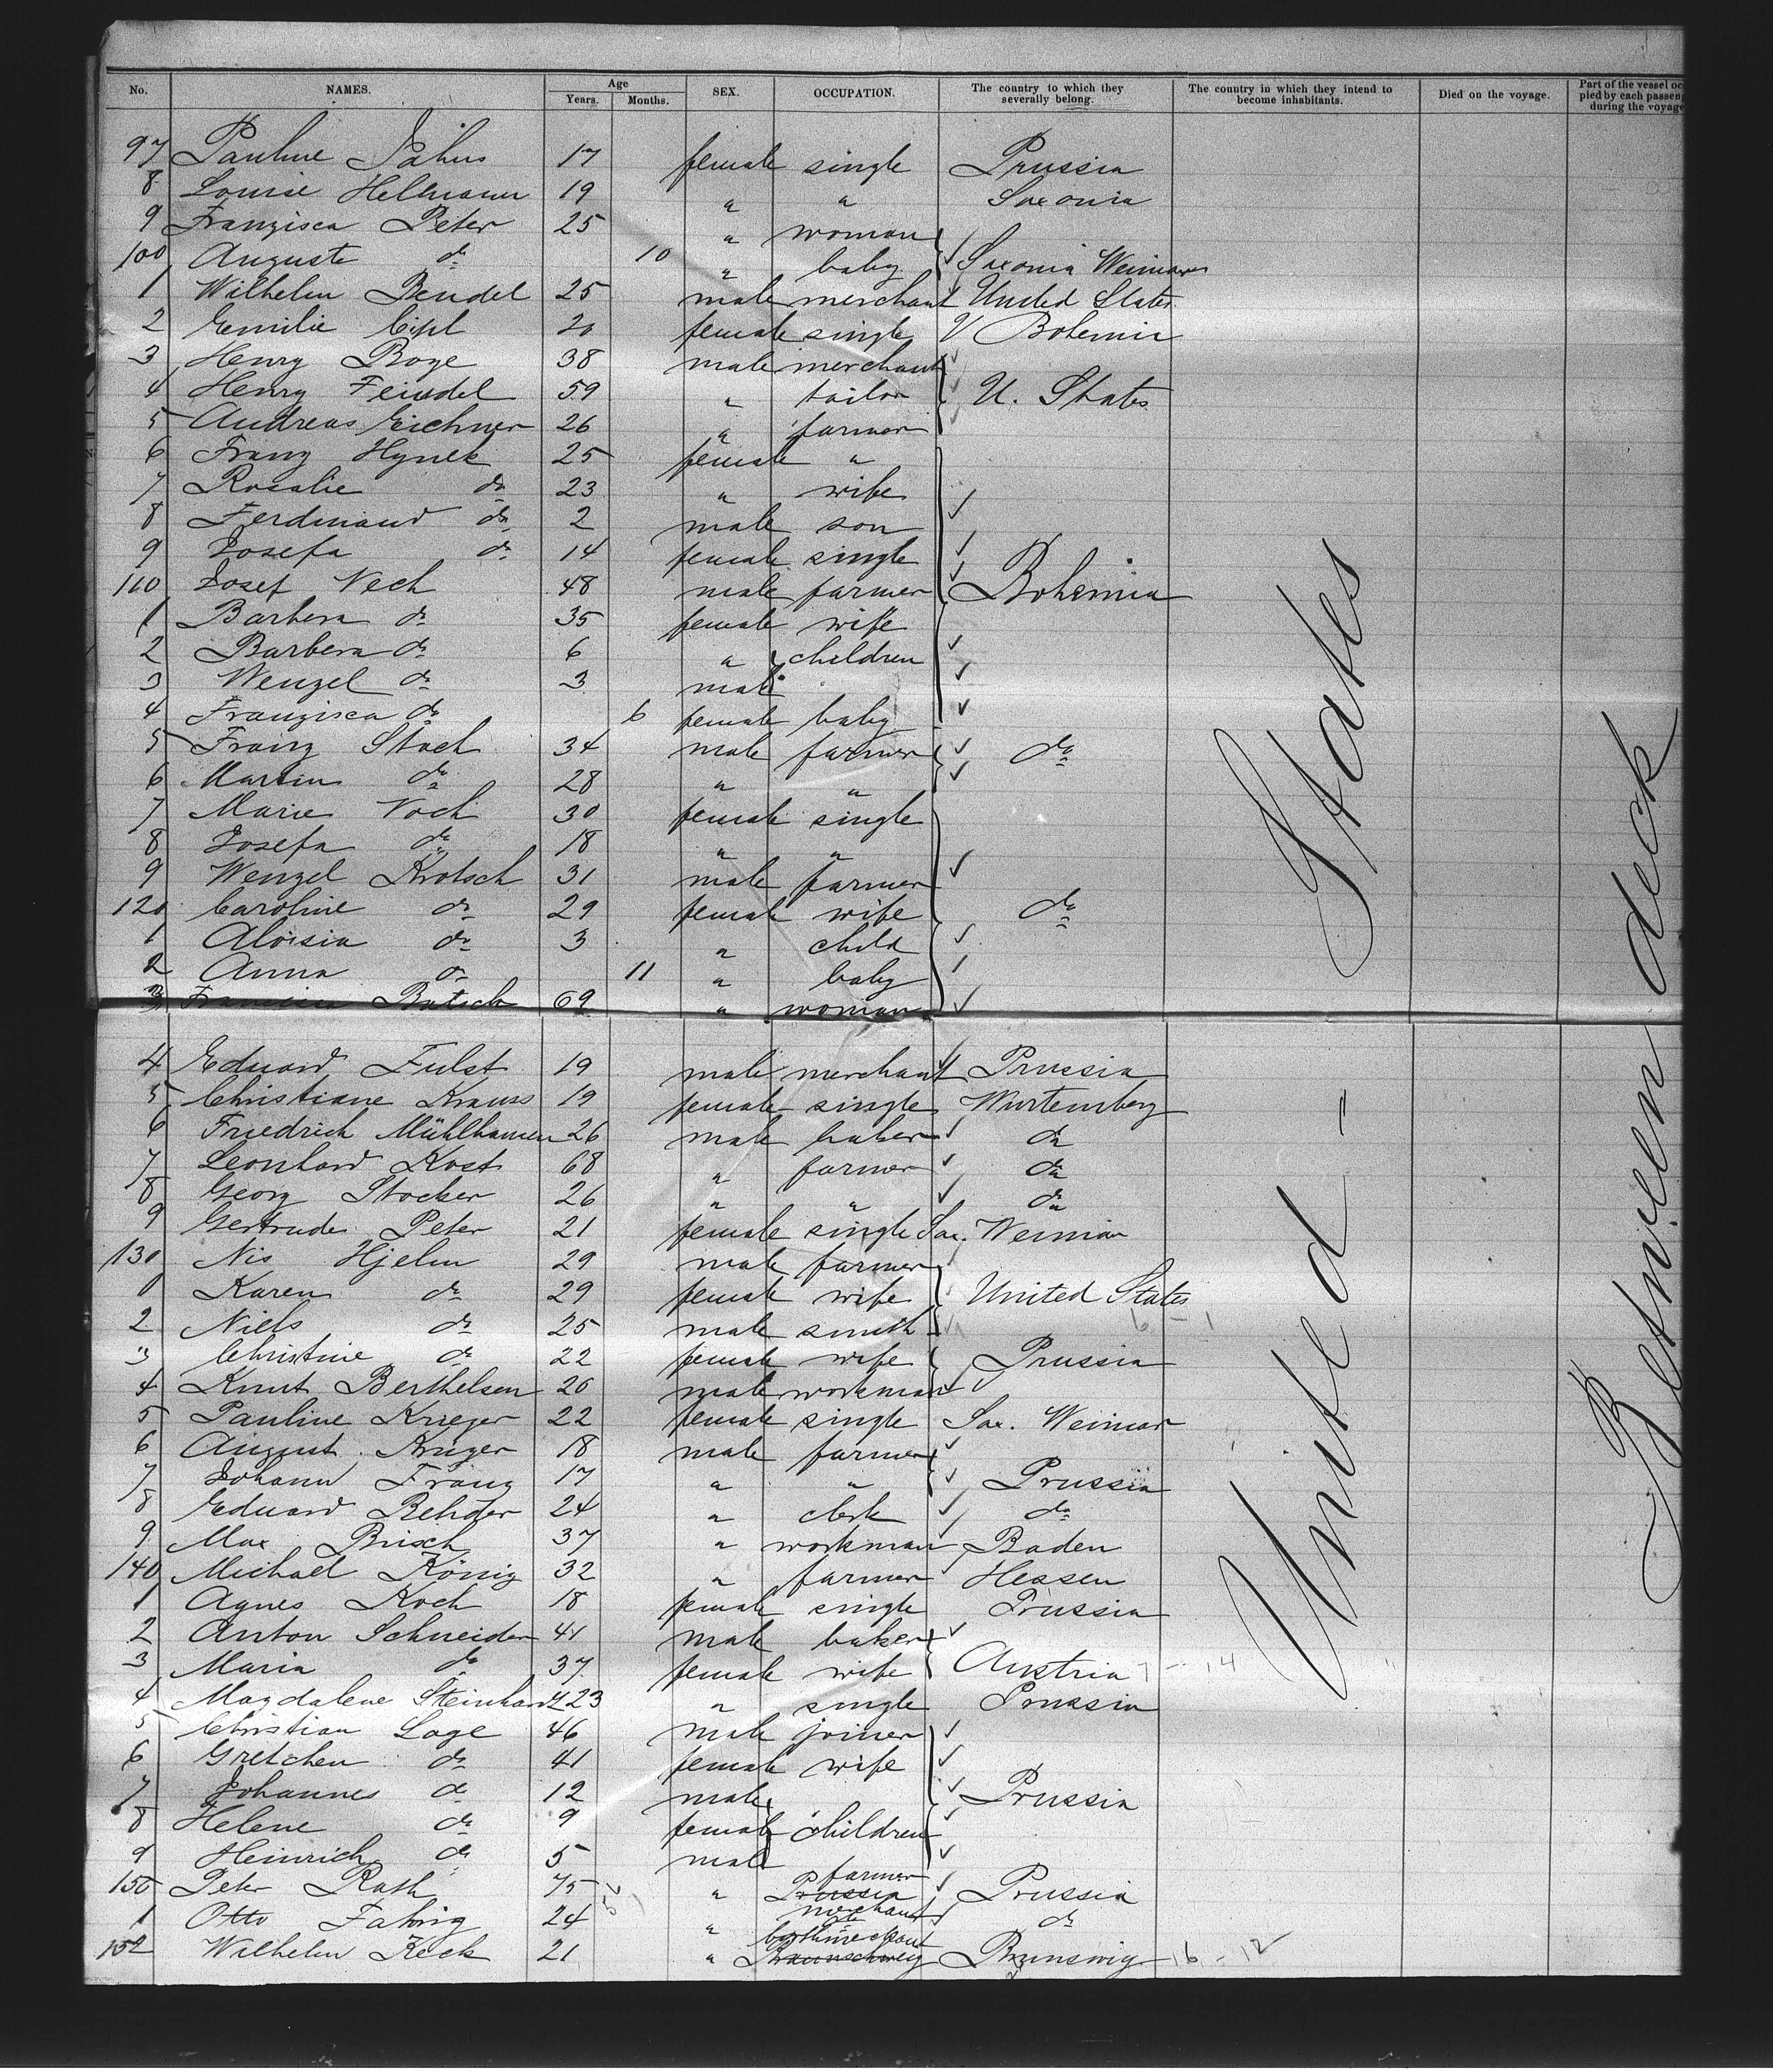 No. NAMES. Age Years. Months. SEX. OCCUPATION. The country to which they severally belong. The country in which they intend to become inhabitants. Died on the voyage. Part of the vessel occupied by each passen during the voyage
97 Pauline 17 female single Prussia
8 Louise Hellmann 19 " " Saxonia
9 Franzisca Peter 25 " woman
100 Auguste do 10 " baby Saxonia Weimar
1 Wilhelm Bendel 25 male merchant United States
2 Emilie 20 female single Bohemia
3 Henry Boye 38 male merchant
4 Henry Feindel 59 " tailor U. States
5 Andreas Eichner 26 " farmer
6 Franz Hynek 25 female "
7 Rosalie do 23 " wife
8 Ferdinand do 2 male son
9 Josefa do 14 female single
110 Josef Vech 48 male farmer Bohemia
1 Barbera do 35 female wife
2 Barbera do 6 " children
3 Wenzel do 3 male
4 Franzisca do 6 female baby
5 Franz Stach 34 male farmer do
6 Martin do 28 " "
7 Marie 30 female single
8 Josefa do 18 " "
9 Wenzel Krotsch 31 male farmer
120 Caroline do 29 female wife do
1 Aloisia do 3 " child
2 Anna do 11 " baby
3 Botsch 69 " woman
4 Eduard Fulst 19 male merchant Prussia
5 Christiane Krauss 19 female single Wurtemberg
6 Friedrich Mühlhausen 26 male baker do
7 Leonhard Kost 68 " farmer do
8 Georg Stocker 26 " " do
9 Gertrude Peter 21 female single Sax. Weimar
130 Nis Hjelm 29 male farmer
1 Karen do 29 female wife United States
2 Niels do 25 male smith
3 Christine do 22 female wife Prussia
4 Knut Berthelsen 26 male workman
5 Pauline Krieger 22 female single Sax. Weimar
6 August Krüger 18 male farmer
7 Johann Franz 17 " " Prussia
8 Eduard Rehder 24 " clerk do
9 Max Brisch 37 " workman Baden
140 Michael König 32 " farmer Hessen
1 Agnes Koch 18 female single Prussia
2 Anton Schneider 41 male baker
3 Maria do 37 female wife Austria 7 - 14
4 Magdalene Steinhardt 23 " single Prussia
5 Christian Lage 46 male joiner
6 Gretchen do 41 female wife
7 Johannes do 12 male Prussia
8 Helene do 9 female children
9 Heinrich do 5 male
150 Peter Rath 45 " farmer Prussia Prussia
1 Otto Fahrig 24 " merchant do
152 Wilhelm Keck 21 " Braunschweig Brunswig 16 - 12
United - States
Between deck